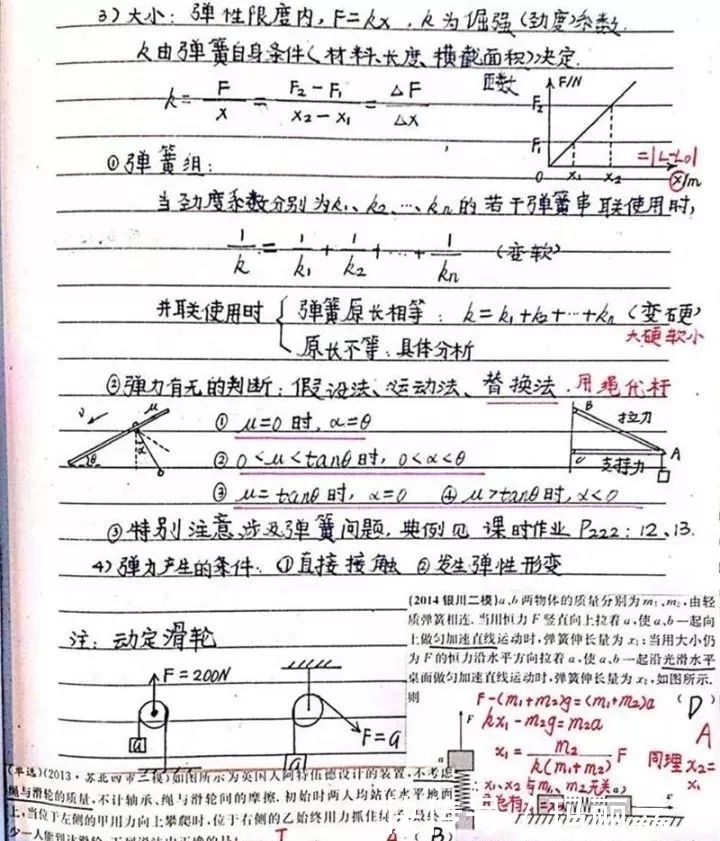 3) 大小: 弹性限度内, F=kx, k为倔强(劲度)系数.
k由弹簧自身条件(材料、长度、横截面积)决定.
k = F/x = (F₂-F₁)/(x₂-x₁) = ΔF/Δx
正数
F/N
F₂
F₁
0 x₁ x₂ x/m
=|L-L₀|
①弹簧组:
当劲度系数分别为k₁、k₂、…、kₙ的若干弹簧串联使用时,
1/k = 1/k₁ + 1/k₂ + … + 1/kₙ (变软)
并联使用时 { 弹簧原长相等: k=k₁+k₂+…+kₙ (变硬)
原长不等: 具体分析
大硬软小
②弹力有无的判断: 假设法、运动法、替换法. 用绳代杆
① μ=0时, α=θ
② 0<μ<tanθ时, 0<α<θ
③ μ=tanθ时, α=0 ④ μ>tanθ时, α<0
υ μ
θ α
B 拉力
A
C 支持力
③特别注意涉及弹簧问题, 典例见 课时作业 P222: 12、13.
4)弹力产生的条件: ①直接接触 ②发生弹性形变
注: 动定滑轮
F=200N
a
F=G
a
(2014银川二模)a、b两物体的质量分别为m₁、m₂,由轻
质弹簧相连.当用恒力F竖直向上拉着a,使a、b一起向
上做匀加速直线运动时,弹簧伸长量为x₁;当用大小仍
为F的恒力沿水平方向拉着a,使a、b一起沿光滑水平
桌面做匀加速直线运动时,弹簧伸长量为x₂,如图所示.
则 ( D )
F-(m₁+m₂)g=(m₁+m₂)a
kx₁-m₂g=m₂a
x₁ = m₂/(k(m₁+m₂)) F 同理 x₂=x₁
A
∴x₁、x₂与m₁、m₂无关
F
a
(单选)(2013·苏北四市三模)如图所示为英国人阿特伍德设计的装置,不考虑
绳与滑轮的质量,不计轴承、绳与滑轮间的摩擦.初始时两人均站在水平地面
上,当位于左侧的甲用力向上攀爬时,位于右侧的乙始终用力抓住
少一人能到达滑轮.下列说法中正确的是 ( B )